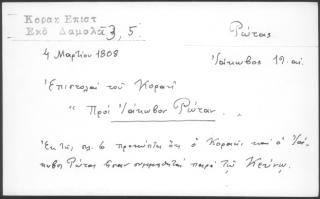 Κοραη Επιστ
Εκδ Δαμαλᾶ 3, 5.
Ρώτας
4 Μαρτίου 1808
Ἰάκωβος 19 αἰ.
Ἐπιστολαὶ τοῦ Κοραῆ
" Πρὸς Ἰάκωβον Ρώταν.
Ἐκ τῆς σελ. 6 προκύπτει ὅτι ὁ Κοραῆς καὶ ὁ Ἰά-
κωβος Ρώτας ἦσαν συμμαθηταὶ παρὰ τῷ